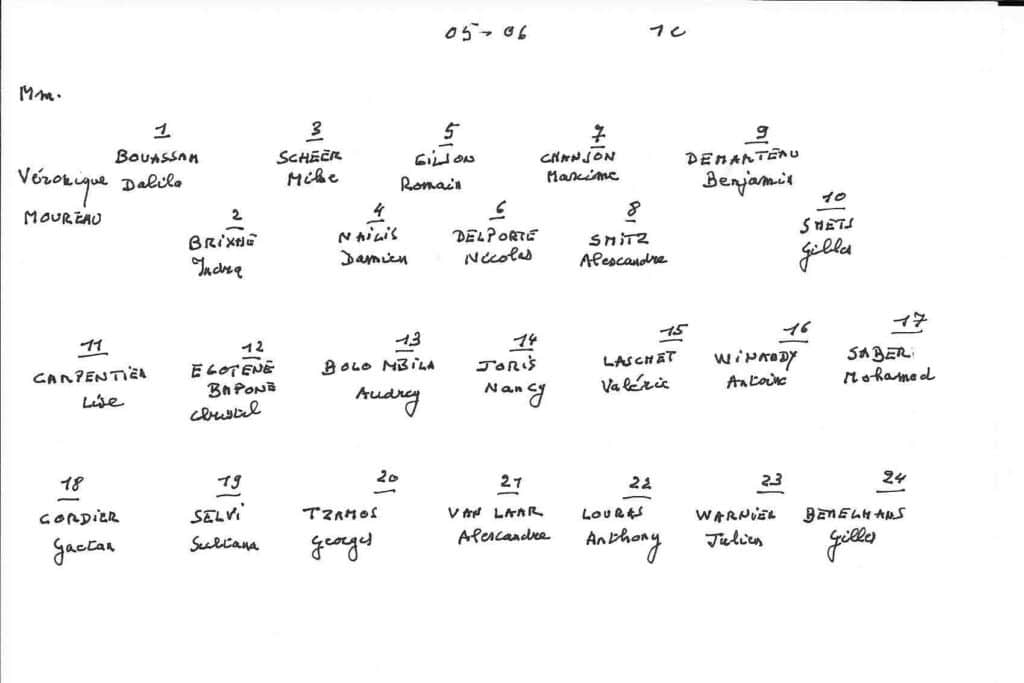 05-06 1C
Mm.
Véronique
MOUREAU
1 3 5 7 9
BOUASSAM SCHEER GILSON CHANSON DEMARTEAU
Dalila Mike Romain Maxime Benjamin
2 4 6 8 10
BRIXHE NAILIS DELPORTE SMITZ SMETS
Damien Nicolas Alexandre Gilles
11 12 13 14 15 16 17
CARPENTIER EGOTENE BOLO MBILA JORIS LASCHET WINANDY SABERI
Lise BAPONE Audrey Nancy Valérie Antoine Mohamed
Christel
18 19 20 21 22 23 24
CORDIER SELVI TZAMOS VAN LAAR LOURAS WARNIER BEMELMANS
Gaetan Sultana Georges Alexandre Anthony Julien Gilles